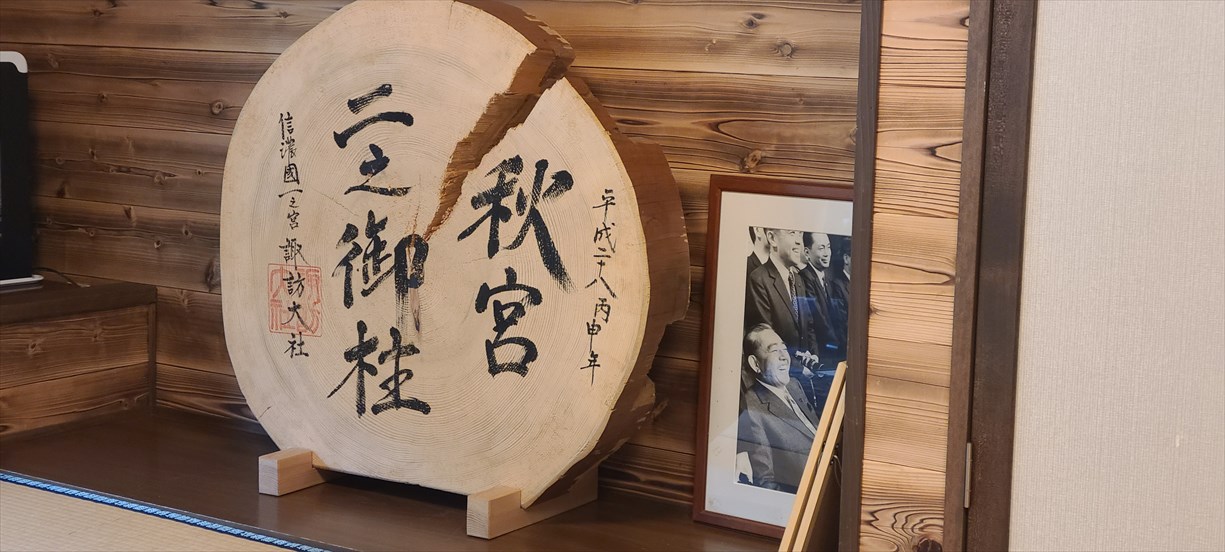 平成二十八丙申年
秋宮
二之御柱
信濃國一之宮 諏訪大社